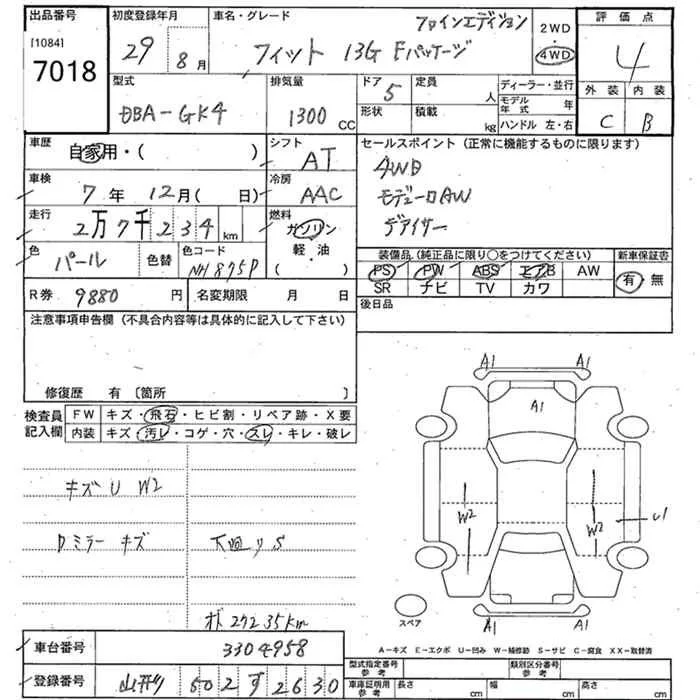 出品番号 初度登録年月 車名・グレード ファインエディション 2WD 評価点
[1084] 29 8月 フィット 13G Fパッケージ ・ 4WD 4
7018
型式 排気量 ドア 5 定員 人 ディーラー・並行 外装 内装
DBA-GK4 1300 CC 形状 積載 kg モデル年式 年 C B
ハンドル 左・右
車歴 自家用・( ) シフト AT セールスポイント (正常に機能するものに限ります)
車検 7年 12月( 日) 冷房 AAC 4WD
走行 2万7千234km 燃料 ガソリン モデューロAW
軽・油 デアイサー
( )
色 パール 色替 色コード NH875P 装備品 (純正品に限り〇をつけてください) 新車保証書
PS PW ABS エアB AW 有・無
SR ナビ TV カワ
R券 9880円 名変期限 月 日 後日品
注意事項申告欄 (不具合内容等は具体的に記入して下さい)
修復歴 有 〔箇所 〕
検査員記入欄 FW キズ・飛石・ヒビ割・リペア跡・X要
内装 キズ・汚レ・コゲ・穴・スレ・キレ・破レ
キズ U W2
Dミラー キズ 下廻りS
オド 27235km
A1 A1
A1
W2 W2 U1
スペア A1 A1
車台番号 3304958
A-キズ E-エクボ U-凹み W-補修跡 S-サビ C-腐食 XX-取替済
登録番号 502 す 2630
型式指定番号 参考 類別区分番号 参考
車庫証明用 参考 長さ cm 幅 cm 高さ cm